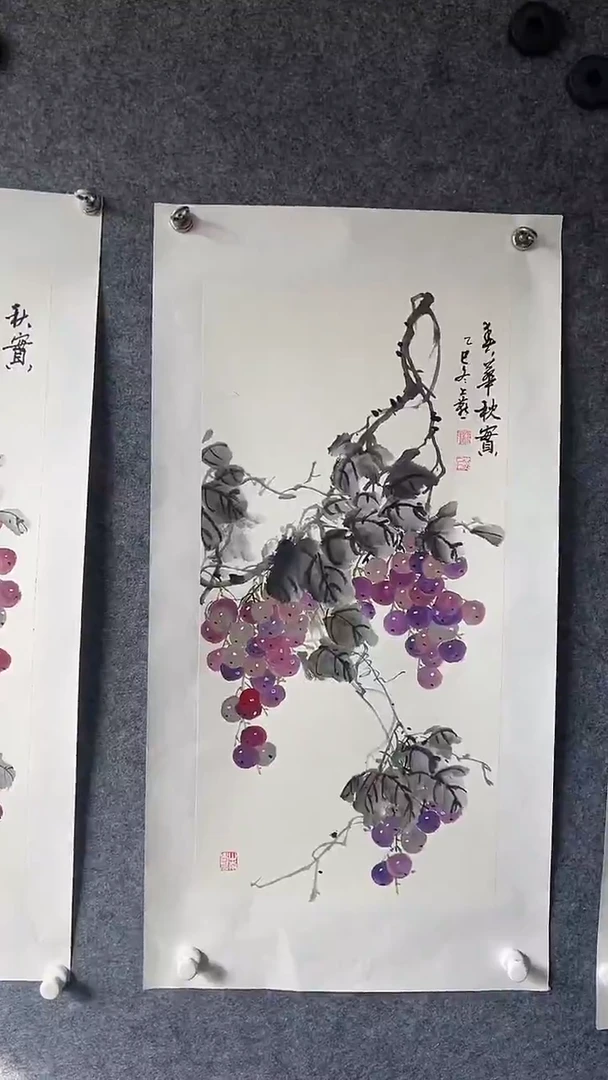 春華秋實
乙巳冬
秋實